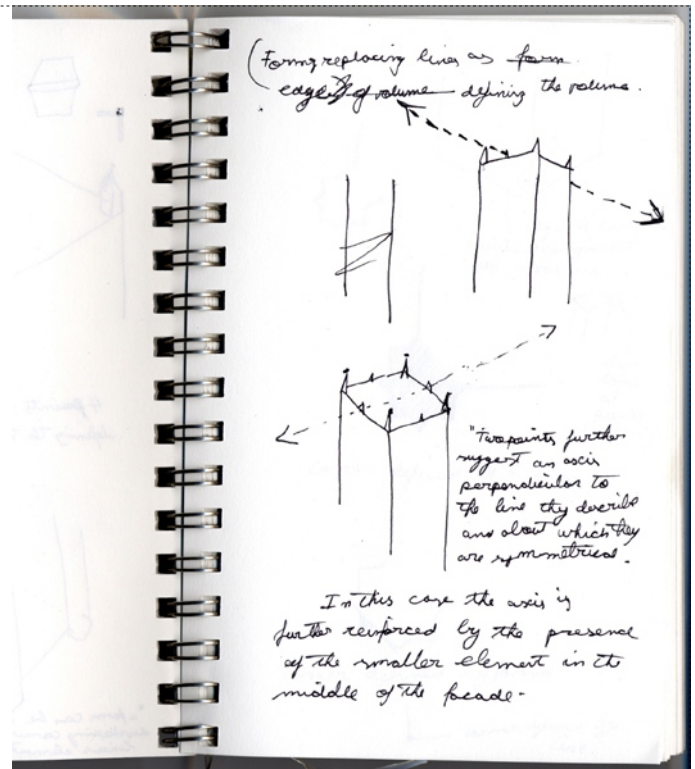 (Forms replacing lines as form
edges of volume defining the volume.
"Two points further
suggest an axis
perpendicular to
the line thy describe
and about which they
are symmetrical.
In this case the axis is
further reinforced by the presence
of the smaller element in the
middle of the facade-